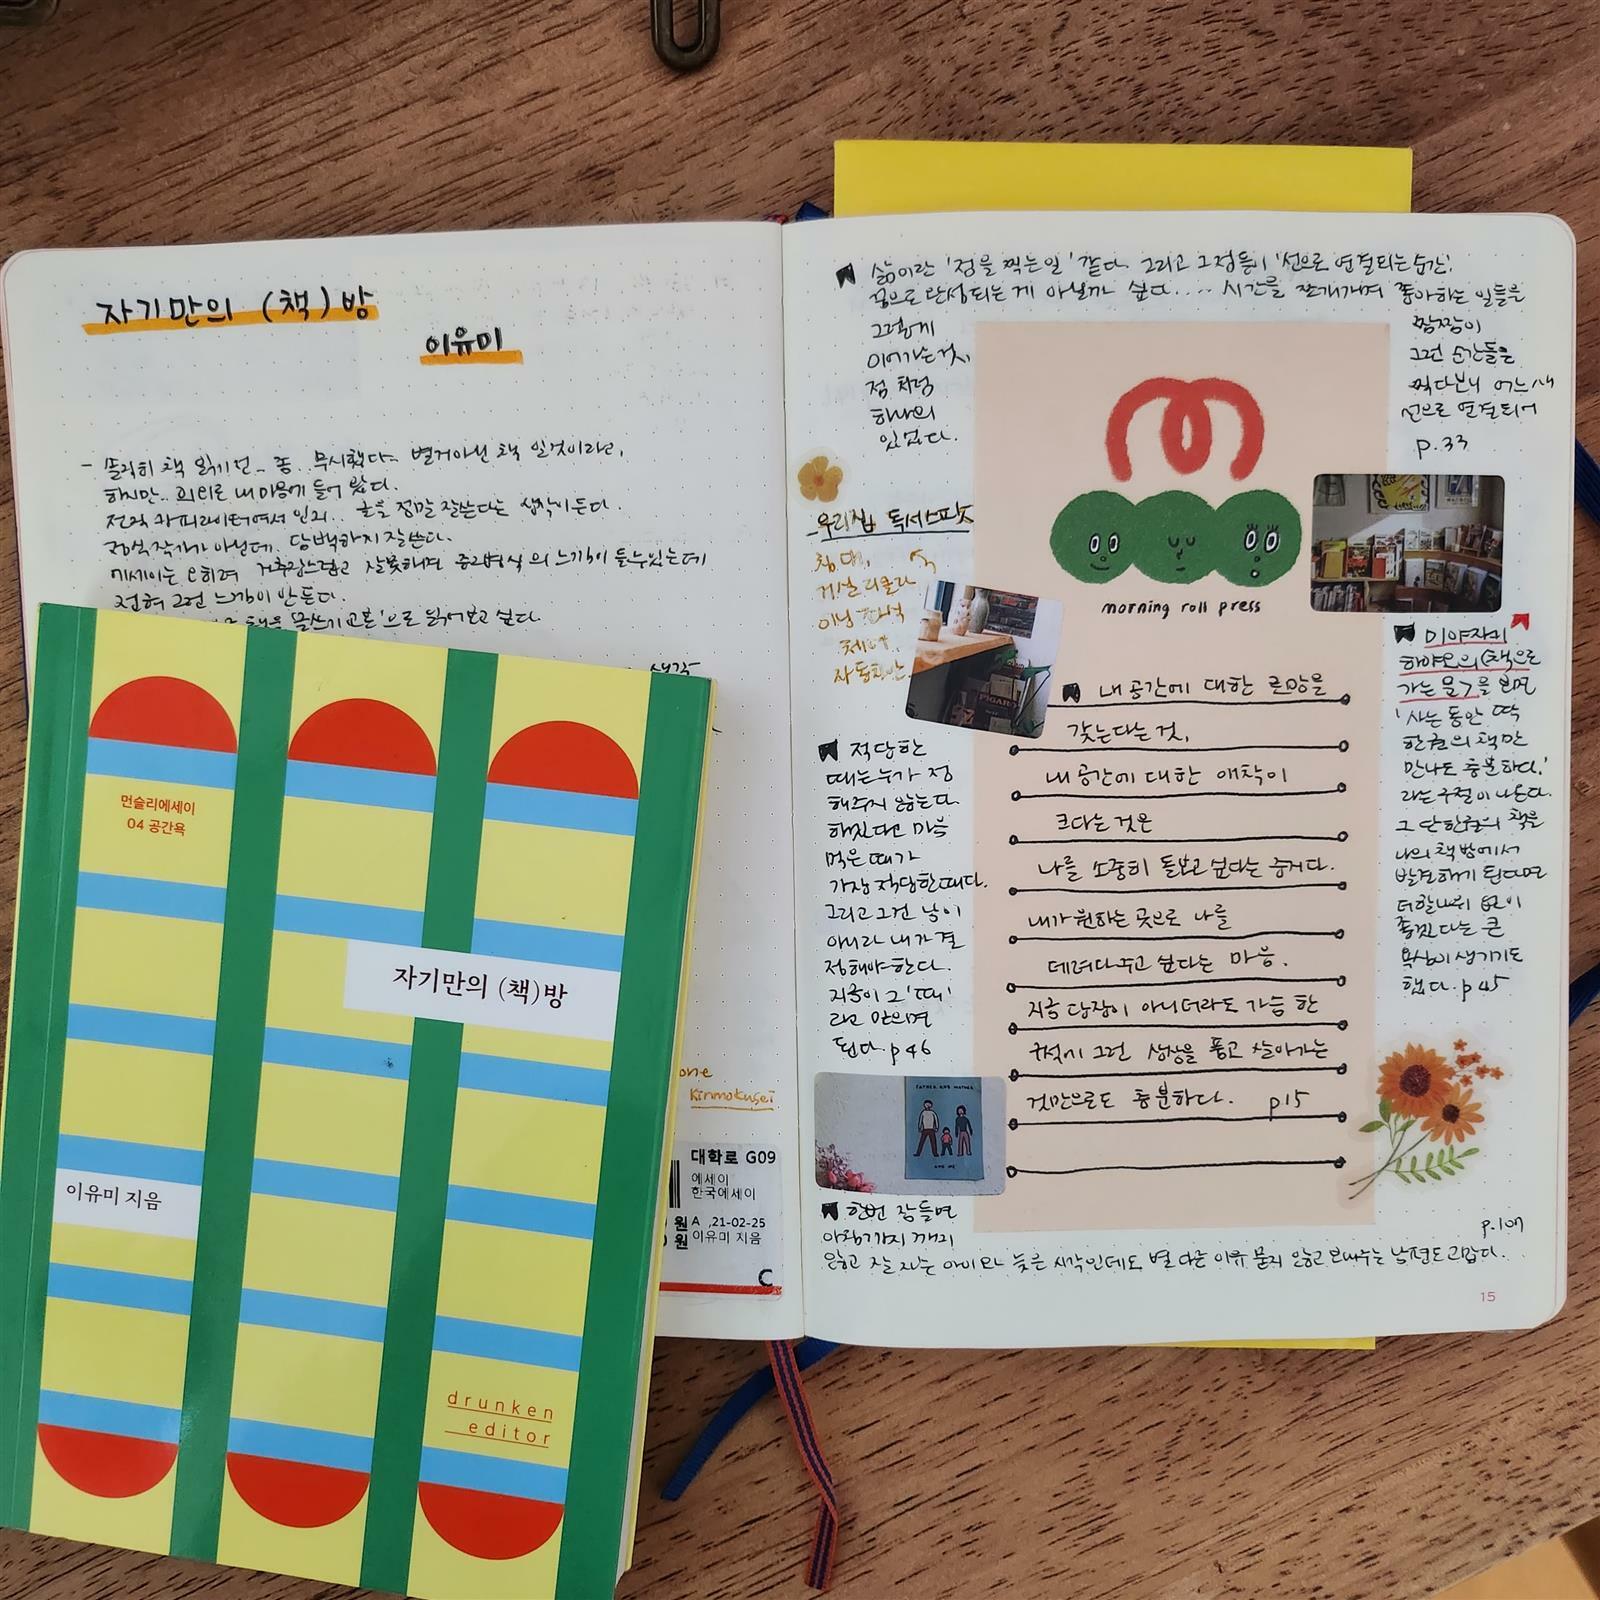 자기만의 (책)방
이유미
- 솔직히 책 읽기 전.. 좀.. 무시했다. 별거아닌 책 일것이라고,
하지만.. 의외로 내 마음에 들어 왔다.
전직 카피라이터여서 인지.. 글을 정말 잘쓴다는 생각이 든다.
정식작가가 아닌데, 담백하지 잘쓴다.
에세이는 오히려 거추장스럽고 잘못하면 중2병식의 느낌이 들수있는데
전혀 그런 느낌이 안든다.
책을 글쓰기 교본'으로 읽어보고 싶다.
생각
one
Kinmokusei
대학로 G09
에세이
한국에세이
원 A ,21-02-25
원 이유미 지음
C
먼슬리에세이
04 공간욕
자기만의 (책)방
이유미 지음
drunken
editor
삶이란 '점을 찍는일' 같다. 그리고 그점들이 '선으로 연결되는순간'.
꿈으로 완성되는 게 아닐까 싶다..... 시간을 쪼개가며 좋아하는 일들을
짬짬이
그렇게
이어가는것,
그런 순간들은
점 처럼
찍다보니 어느새
하나의
선으로 연결되어
있었다.
p.33
우리집 독서스팟
침대,
거실 리클라
이닝
자동차안
morning roll press
내 공간에 대한 로망을
갖는다는 것,
내 공간에 대한 애착이
크다는 것은
나를 소중히 돌보고 싶다는 증거다.
내가 원하는 곳으로 나를
데려다주고 싶다는 마음.
지금 당장이 아니더라도 가슴 한
구석에 그런 상상을 품고 살아가는
것만으로도 충분하다. p15
적당한
때는 누가 정
해주지 않는다.
해졌다고 마음
먹은 때가
가장 적당한때다.
그리고 그건 남이
아니라 내가 결
정해야 한다.
지금이 그 '때'
라고 믿으면
된다. p46
미야자키
하야오의 <책으로
가는 문>을 보면
'사는 동안 딱
한권의 책만
만나도 충분하다.'
라는 구절이 나온다.
그 단 한권의 책을
나의 책방에서
발견하게 된다면
더할나위 없이
좋겠다는 큰
욕심이 생기기도
했다. p45
FATHER AND MOTHER
AND ME
한번 잠들면
아침까지 깨지
않고 잘 자는 아이와 늦은 시각인데도 별 다른 이유 묻지 않고 보내주는 남편도 고맙다.
p.107
15